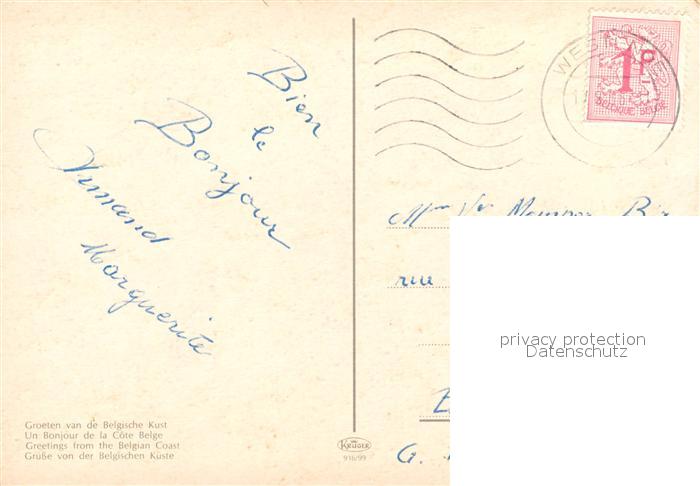 Bien
le
Bonjour
Armand
Marguerite
Groeten van de Belgische Kust
Un Bonjour de la Côte Belge
Greetings from the Belgian Coast
Grüße von der Belgischen Küste
KRÜGER
916/99
1F
BELGIQUE BELGIË
rue
G.
privacy protection
Datenschutz